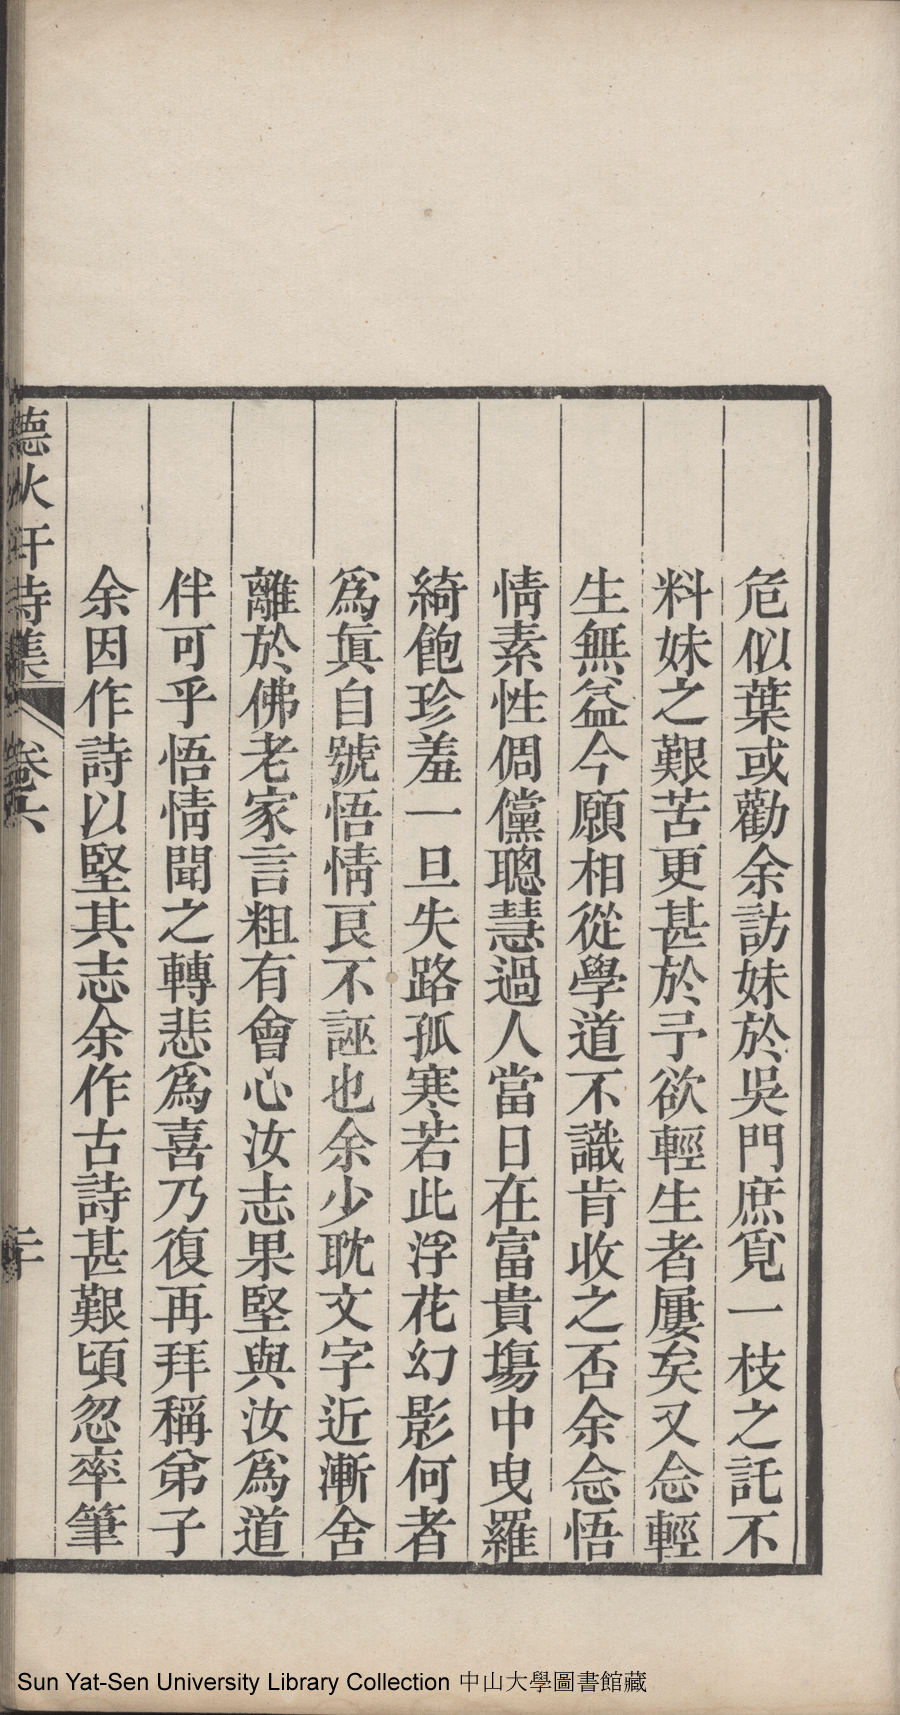 危似葉或勸余訪妹於吳門庶覓一枝之託不
料妹之艱苦更甚於予欲輕生者屢矣又念輕
生無益今願相從學道不識肯收之否余念悟
情素性倜儻聰慧過人當日在富貴塲中曳羅
綺飽珍羞一旦失路孤寒若此浮花幻影何者
爲眞自號悟情良不誣也余少耽文字近漸舍
離於佛老家言粗有會心汝志果堅與汝爲道
伴可乎悟情聞之轉悲爲喜乃復再拜稱弟子
余因作詩以堅其志余作古詩甚艱頃忽率筆
聽秋軒詩集 卷六 二十
Sun Yat-Sen University Library Collection 中山大學圖書館藏